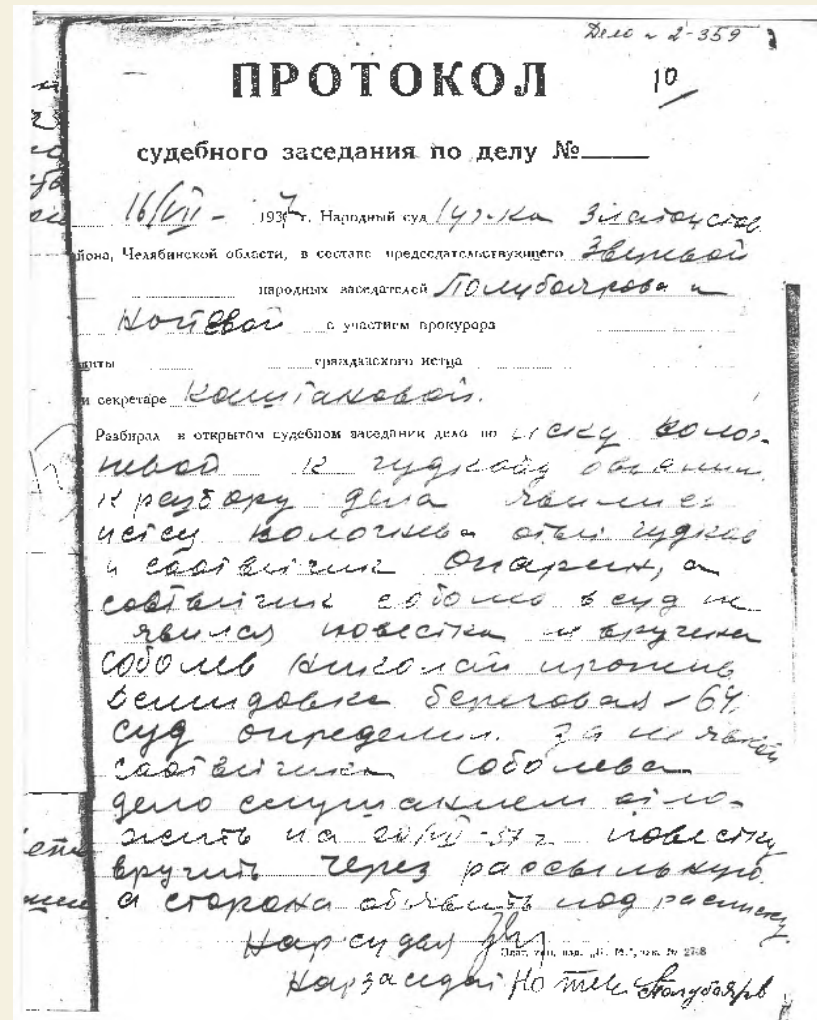 Дело № 2-359
ПРОТОКОЛ 10
судебного заседания по делу №
16/VII - 1937 г. Народный суд 1 уч-ка Златоустов
йона, Челябинской области, в составе председательствующего Зверевой
народных заседателей Полубоярова и
Нотевой с участием прокурора
щиты гражданского истца
и секретаре
Разбирал в открытом судебном заседании дело по иску Волог-
к разбору дела явились
истец ответ Гудков
и соответчик Опарин, а
соответчик Соболев в суд не
явился повестка не вручена
Соболев Николай прожив
Демидовка Береговая - 64
суд определил. за неявкой
соответчика Соболева
дело слушанием отло-
жить на 20/VII-37 г повестку
вручить через рассыльную
а сторона объявить под расписку.
Нарсудья
Злат. тип. изд.
Нарзаседат Нотев Полубояров